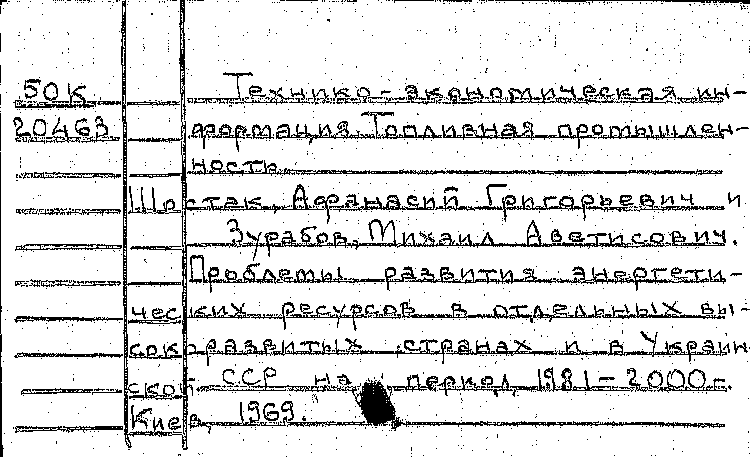 50К Технико-экономическая ин-
20463 формация. Топливная промышлен-
ность.
Шостак, Афанасий Григорьевич и
Зурабов, Михаил Аветисович.
Проблемы развития энергети-
ческих ресурсов в отдельных вы-
сокоразвитых странах и в Украин
ской ССР на период 1981-2000г.
Киев, 1969.